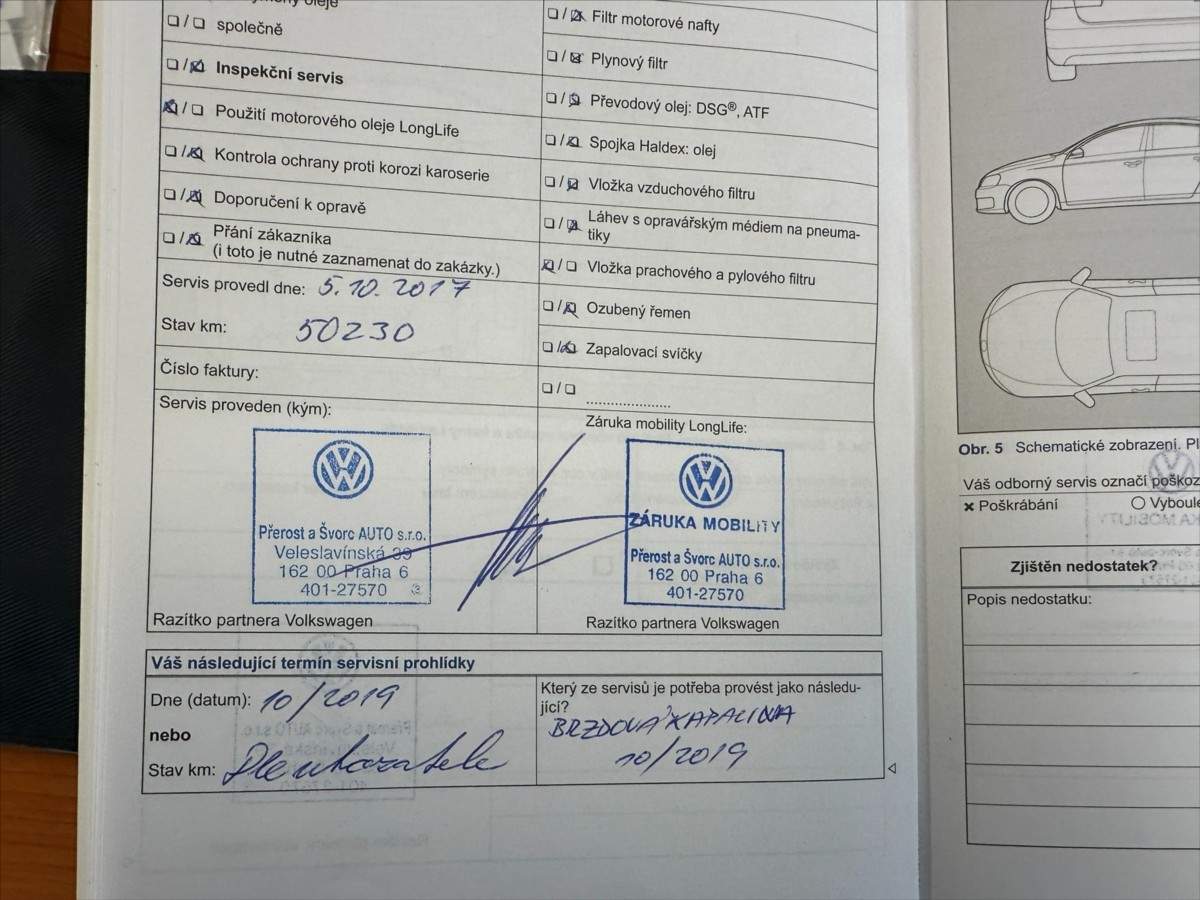 společně
Inspekční servis
Použití motorového oleje LongLife
Kontrola ochrany proti korozi karoserie
Doporučení k opravě
Přání zákazníka
(i toto je nutné zaznamenat do zakázky.)
Servis provedl dne: 5.10.2017
Stav km: 50230
Číslo faktury:
Servis proveden (kým):
Přerost a Švorc AUTO s.r.o.
Veleslavínská 39
162 00 Praha 6
401-27570
Razítko partnera Volkswagen
Filtr motorové nafty
Plynový filtr
Převodový olej: DSG®, ATF
Spojka Haldex: olej
Vložka vzduchového filtru
Láhev s opravářským médiem na pneuma-
tiky
Vložka prachového a pylového filtru
Ozubený řemen
Zapalovací svíčky
Záruka mobility LongLife:
ZÁRUKA MOBILITY
Přerost a Švorc AUTO s.r.o.
162 00 Praha 6
401-27570
Razítko partnera Volkswagen
Váš následující termín servisní prohlídky
Dne (datum): 10/2019
nebo
Stav km: Dle ukazatele
Který ze servisů je potřeba provést jako následu-
jící?
BRZDOVÁ KAPALINA
10/2019
Obr. 5 Schematické zobrazení. Pl
Váš odborný servis označí poškoz
Poškrábání
Vyboule
Zjištěn nedostatek?
Popis nedostatku: